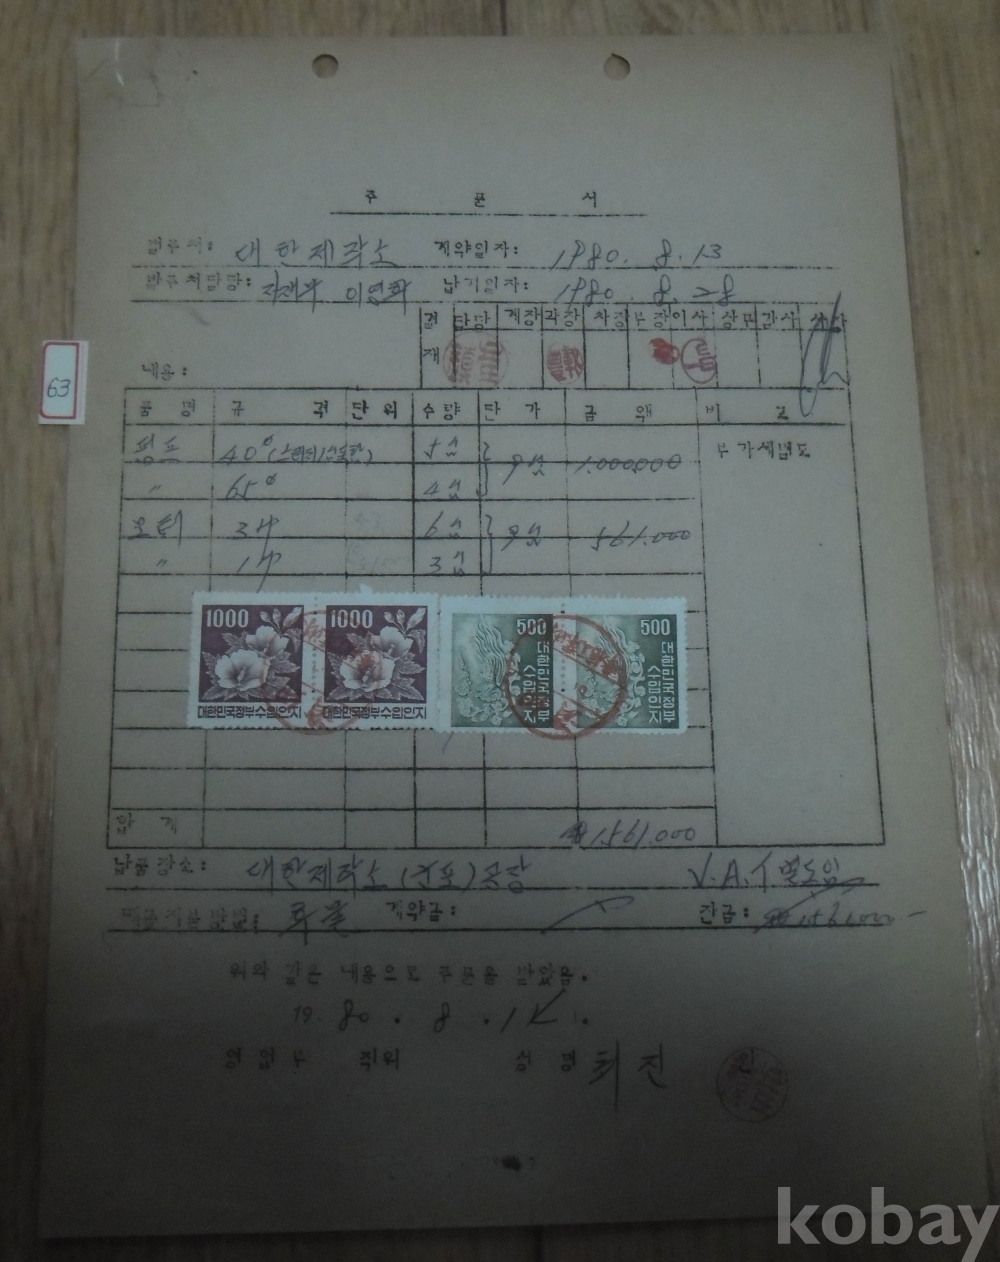 주 문 서
발주처: 대한제작소 계약일자: 1980. 8. 13
발주처담당: 자재부 이영화 납기일자: 1980. 8. 28
결재 담당 계장 과장 차장 부장 이사 상무 감사 사장
내용:
63
품 명 규 격 단위 수량 단 가 금 액 비 고
펌프 40ø 5 1,000,000 부가세별도
〃 65ø 4
모터 3 6 561,000
〃 1 3
1000 1000 500 500
대한민국정부수입인지 대한민국정부수입인지 대한민국정부수입인지 대한민국정부수입인지
합 계 ₩1,561,000
납품장소: 대한제작소 (군포)공장 V.A.T 별도임
대금지불방법: 계약금: 잔금: ₩1,561,000-
위와 같은 내용으로 주문을 받았음.
19 80. 8. 1
영업부 직위 성명 최진 인
kobay